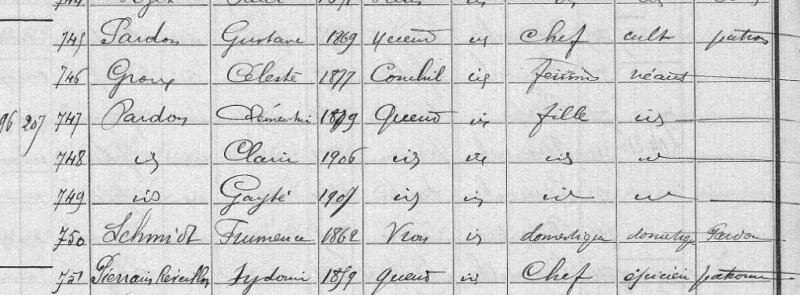 745 Pardon Gustave 1869 Queend id Chef cult patron
746 Groux Céleste 1877 Conchil id femme néant
96 207 747 Pardon Clémentine 18 9 Queend id fille id
748 id Claire 1906 id id id id
749 id 1907 id id id id
750 Schmidt Frumence 1862 Vron id domestique domestique Pardon
751 Pierrain Réveillon Sydonie 1859 Queend id Chef épicière patronne